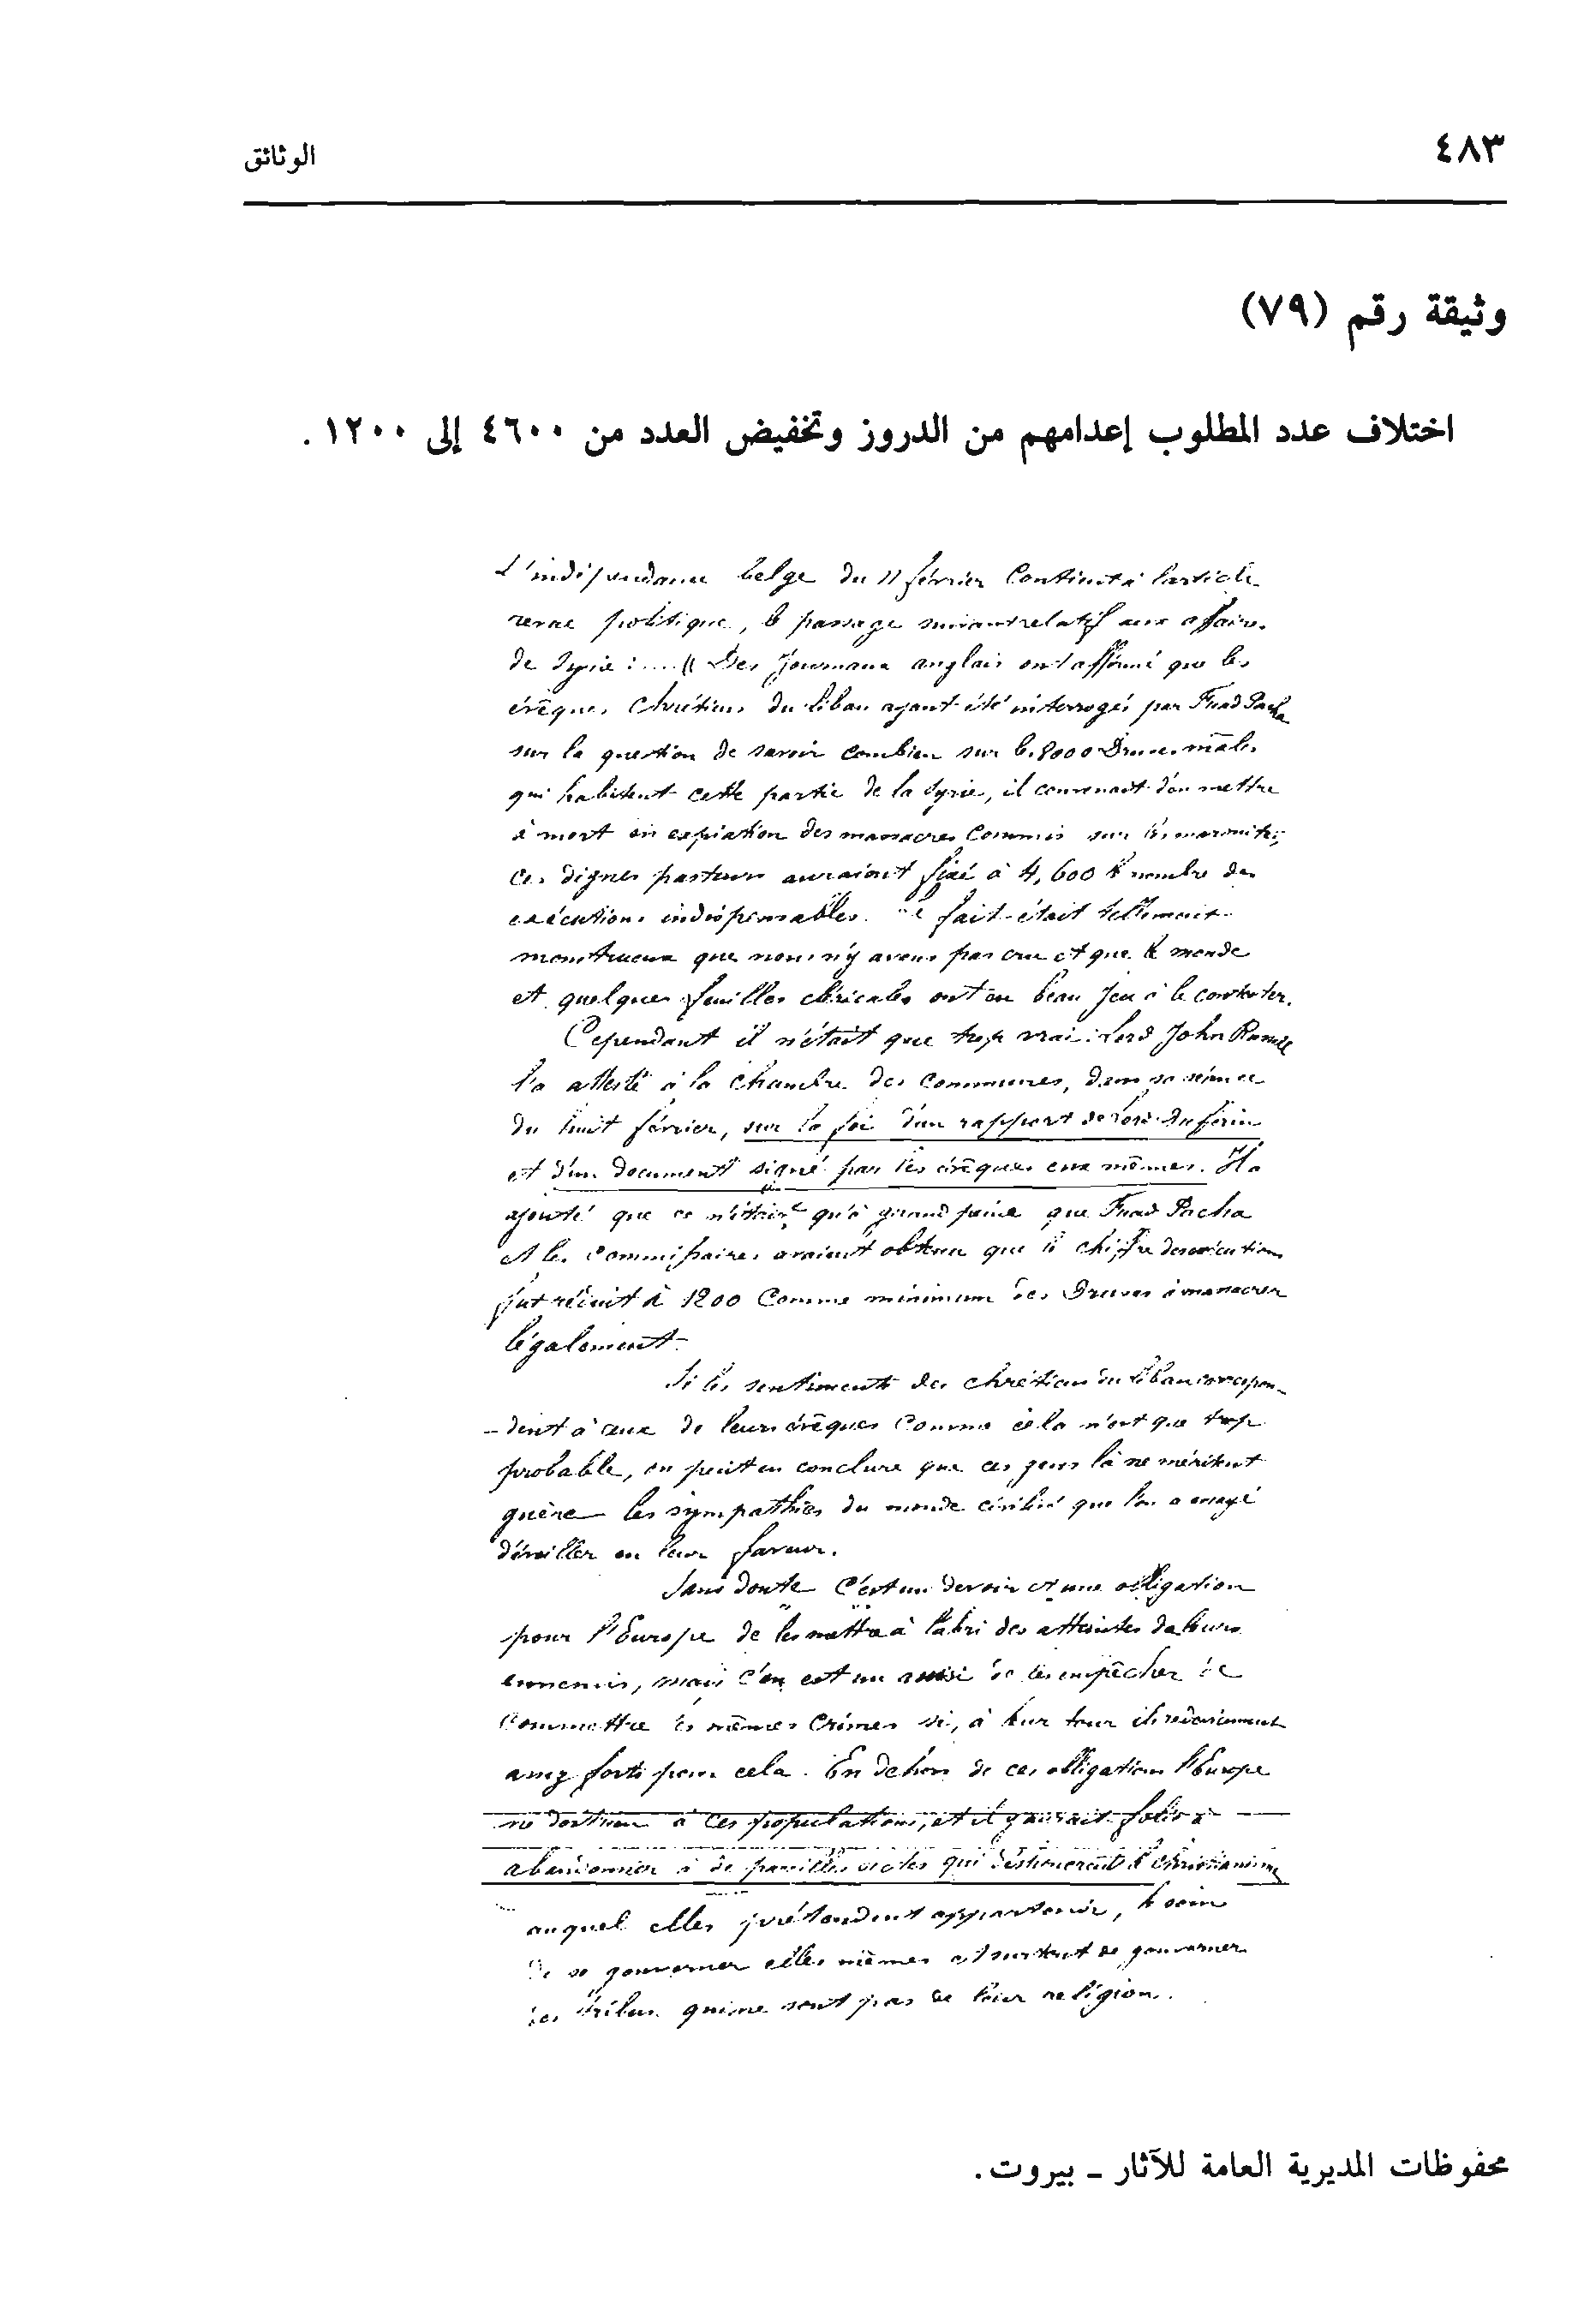 ٤٨٣
الوثائق
وثيقة رقم (٧٩)
اختلاف عدد المطلوب إعدامهم من الدروز وتخفيض العدد من ٤٦٠٠ إلى ١٢٠٠ .
L'indépendance belge du 11 février Contient à l'article
revue politique, le passage suivant relatif aux affaires
de Syrie : .... (( Des journaux anglais ont affirmé que les
évêques Chrétiens du liban ayant été interrogés par Fuad Pacha
sur la question de savoir combien sur les 8000 Druses mâles
qui habitent cette partie de la Syrie, il convenait d'en mettre
à mort en expiation des massacres Commis sur les maronites,
Ces dignes pasteurs auraient fixé à 4,600 le nombre des
exécutions indispensables. Le fait était tellement
monstrueux que nous n'y avons pas cru et que le monde
et quelques feuilles cléricales ont eu beau jeu à le contester.
Cependant il n'était que trop vrai : Lord John Russell
l'a attesté à la chambre des Communes, dans sa séance
du huit février, sur la foi d'un rapport de lord Duferin
et d'un document signé par les évêques eux mêmes. Il a
ajouté que ce n'était qu'à grand peine que Fuad Pacha
et les Commissaires avaient obtenu que le chiffre des exécutions
fut réduit à 1200 Comme minimum des Druses à massacrer
légalement.
Si les sentiments des chrétiens du liban correspon-
-dent à ceux de leurs évêques Comme cela n'est que trop
probable, on peut en conclure que ces gens là ne méritent
guère les sympathies du monde civilisé que l'on a essayé
d'éveiller en leur faveur.
Sans doute C'est un devoir et une obligation
pour l'Europe de les mettre à l'abri des atteintes de leurs
ennemis, mais C'en est un aussi de les empêcher de
Commettre les mêmes Crimes si, à leur tour ils redeviennent
assez forts pour cela. En dehors de ces obligations l'Europe
ne doit rien à Ces populations, et il y aurait folie à
abandonner à de pareilles sectes qui déshonorent le Christianisme
auquel elles prétendent appartenir, le soin
de se gouverner elles mêmes et surtout de gouverner
des tribus qui ne sont pas de leur religion.
محفوظات المديرية العامة للآثار ـ بيروت.